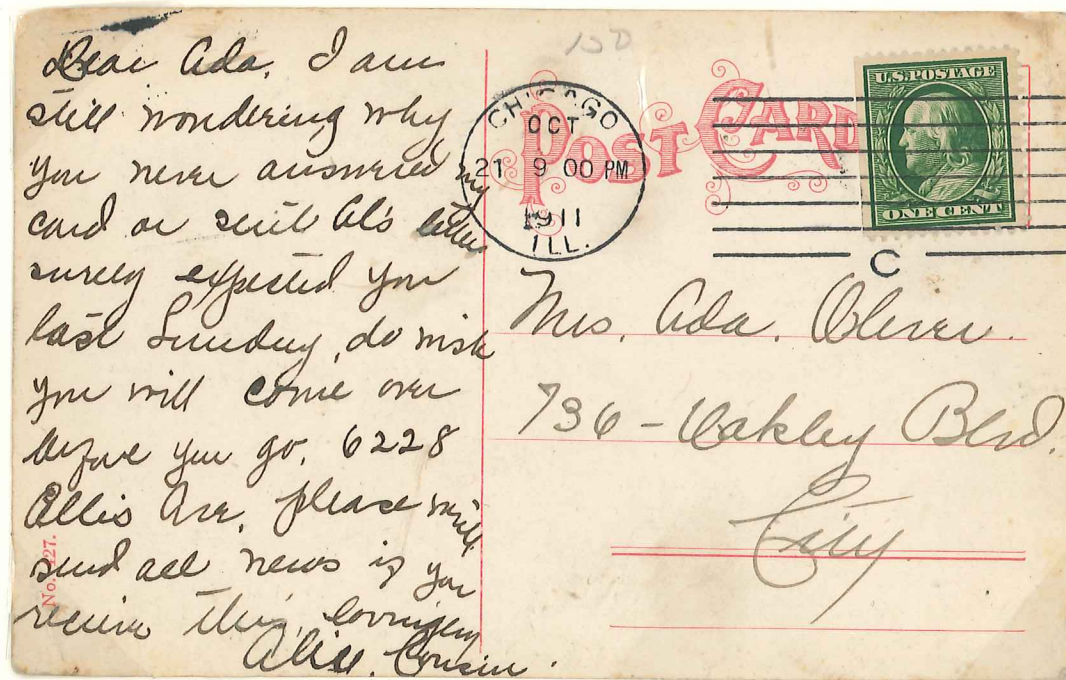 Dear Ada. I am
still wondering why
you never answered my
card or sent Al's letter
surely expected you
last Sunday, do wish
you will come over
before you go. 6228
Ellis Ave. please
send all news if you
receive this, lovingly
Alice. Cousin.
150
POST CARD
CHICAGO
OCT
21 9 00 PM
1911
ILL.
C
U.S. POSTAGE
ONE CENT
Mrs. Ada. Oliver.
736 - Oakley Blvd.
City